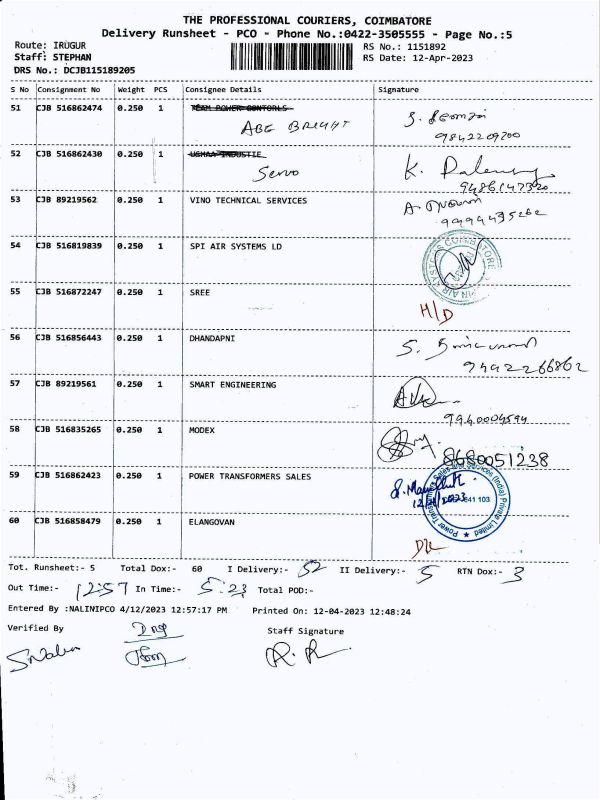 THE PROFESSIONAL COURIERS, COIMBATORE
Delivery Runsheet - PCO - Phone No.:0422-3505555 - Page No.:5
Route: IRUGUR RS No.: 1151892
Staff: STEPHAN RS Date: 12-Apr-2023
DRS No.: DCJB115189205
S No Consignment No Weight PCS Consignee Details Signature
51 CJB 516862474 0.250 1 TEAM POWER CONTORLS
ABE BRIGHT
9842209200
52 CJB 516862430 0.250 1 USHAA INDUSTIE
Servo K.
9486147320
53 CJB 89219562 0.250 1 VINO TECHNICAL SERVICES A.
9994435262
54 CJB 516819839 0.250 1 SPI AIR SYSTEMS LD
55 CJB 516872247 0.250 1 SREE H/D
56 CJB 516856443 0.250 1 DHANDAPNI S.
9442266862
57 CJB 89219561 0.250 1 SMART ENGINEERING
9940004594
58 CJB 516835265 0.250 1 MODEX
8680051238
59 CJB 516862423 0.250 1 POWER TRANSFORMERS SALES
641 103
60 CJB 516858479 0.250 1 ELANGOVAN
Tot. Runsheet:- 5 Total Dox:- 60 I Delivery:- 52 II Delivery:- 5 RTN Dox:- 3
Out Time:- 12:57 In Time:- 5:23 Total POD:-
Entered By :NALINIPCO 4/12/2023 12:57:17 PM Printed On: 12-04-2023 12:48:24
Verified By Staff Signature
R. R